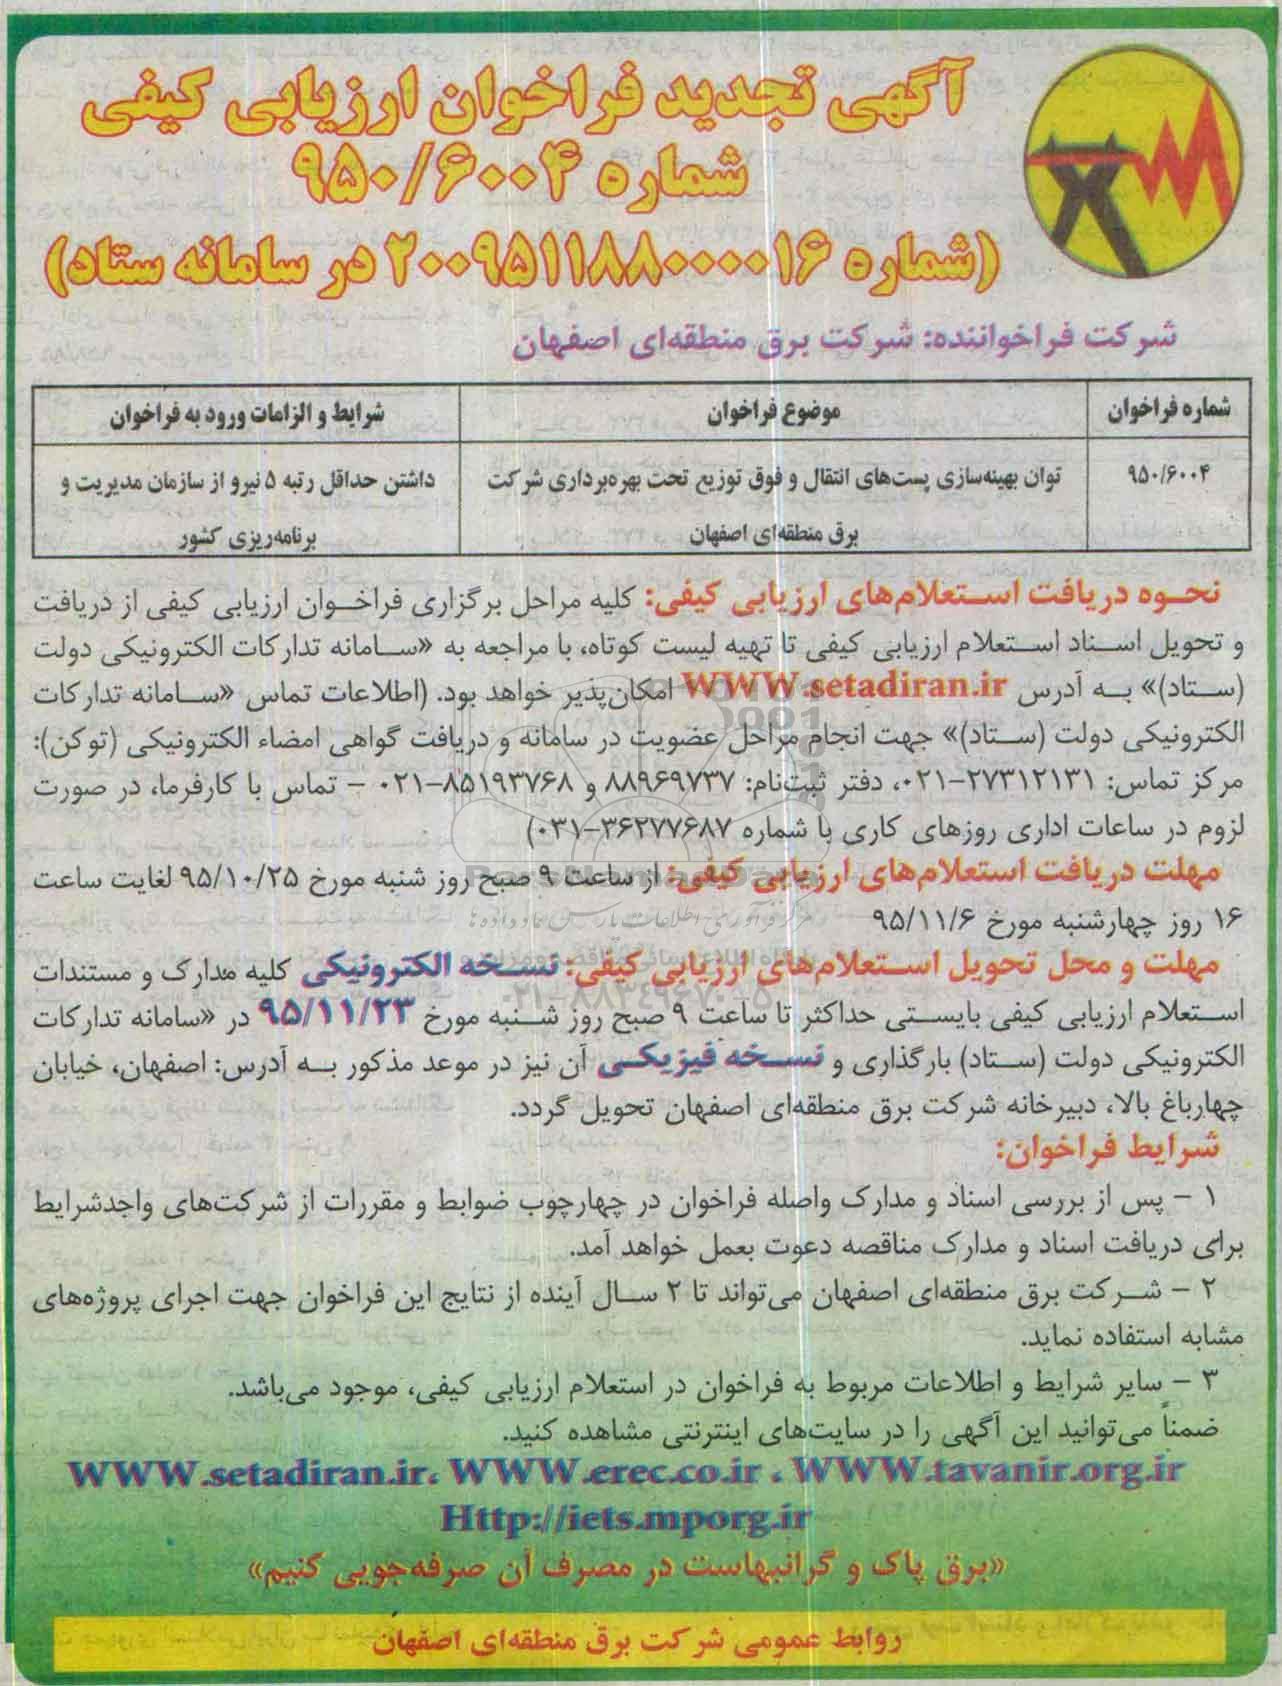 آگهی تجدید فراخوان ارزیابی کیفی
شماره ۹۵۰/۶۰۰۴
(شماره ۲۰۰۹۵۱۱۸۸۰۰۰۰۱۶ در سامانه ستاد)
شرکت فراخواننده: شرکت برق منطقه‌ای اصفهان
شماره فراخوان موضوع فراخوان شرایط و الزامات ورود به فراخوان
۹۵۰/۶۰۰۴ توان بهینه‌سازی پست‌های انتقال و فوق توزیع تحت بهره‌برداری شرکت داشتن حداقل رتبه ۵ نیرو از سازمان مدیریت و
برق منطقه‌ای اصفهان برنامه‌ریزی کشور
نحوه دریافت استعلام‌های ارزیابی کیفی: کلیه مراحل برگزاری فراخوان ارزیابی کیفی از دریافت
و تحویل اسناد استعلام ارزیابی کیفی تا تهیه لیست کوتاه، با مراجعه به «سامانه تدارکات الکترونیکی دولت
(ستاد)» به آدرس WWW.setadiran.ir امکان‌پذیر خواهد بود. (اطلاعات تماس «سامانه تدارکات
الکترونیکی دولت (ستاد)» جهت انجام مراحل عضویت در سامانه و دریافت گواهی امضاء الکترونیکی (توکن):
مرکز تماس: ۲۷۳۱۲۱۳۱-۰۲۱، دفتر ثبت‌نام: ۸۸۹۶۹۷۳۷ و ۸۵۱۹۳۷۶۸-۰۲۱ - تماس با کارفرما، در صورت
لزوم در ساعات اداری روزهای کاری با شماره ۳۶۲۷۷۶۸۷-۰۳۱)
مهلت دریافت استعلام‌های ارزیابی کیفی: از ساعت ۹ صبح روز شنبه مورخ ۹۵/۱۰/۲۵ لغایت ساعت
۱۶ روز چهارشنبه مورخ ۹۵/۱۱/۶
مهلت و محل تحویل استعلام‌های ارزیابی کیفی: نسخه الکترونیکی کلیه مدارک و مستندات
استعلام ارزیابی کیفی بایستی حداکثر تا ساعت ۹ صبح روز شنبه مورخ ۹۵/۱۱/۲۳ در «سامانه تدارکات
الکترونیکی دولت (ستاد) بارگذاری و نسخه فیزیکی آن نیز در موعد مذکور به آدرس: اصفهان، خیابان
چهارباغ بالا، دبیرخانه شرکت برق منطقه‌ای اصفهان تحویل گردد.
شرایط فراخوان:
۱ - پس از بررسی اسناد و مدارک واصله فراخوان در چهارچوب ضوابط و مقررات از شرکت‌های واجدشرایط
برای دریافت اسناد و مدارک مناقصه دعوت بعمل خواهد آمد.
۲ - شرکت برق منطقه‌ای اصفهان می‌تواند تا ۲ سال آینده از نتایج این فراخوان جهت اجرای پروژه‌های
مشابه استفاده نماید.
۳ - سایر شرایط و اطلاعات مربوط به فراخوان در استعلام ارزیابی کیفی، موجود می‌باشد.
ضمناً می‌توانید این آگهی را در سایت‌های اینترنتی مشاهده کنید.
WWW.setadiran.ir، WWW.erec.co.ir ، WWW.tavanir.org.ir
Http://iets.mporg.ir
«برق پاک و گرانبهاست در مصرف آن صرفه‌جویی کنیم»
روابط عمومی شرکت برق منطقه‌ای اصفهان